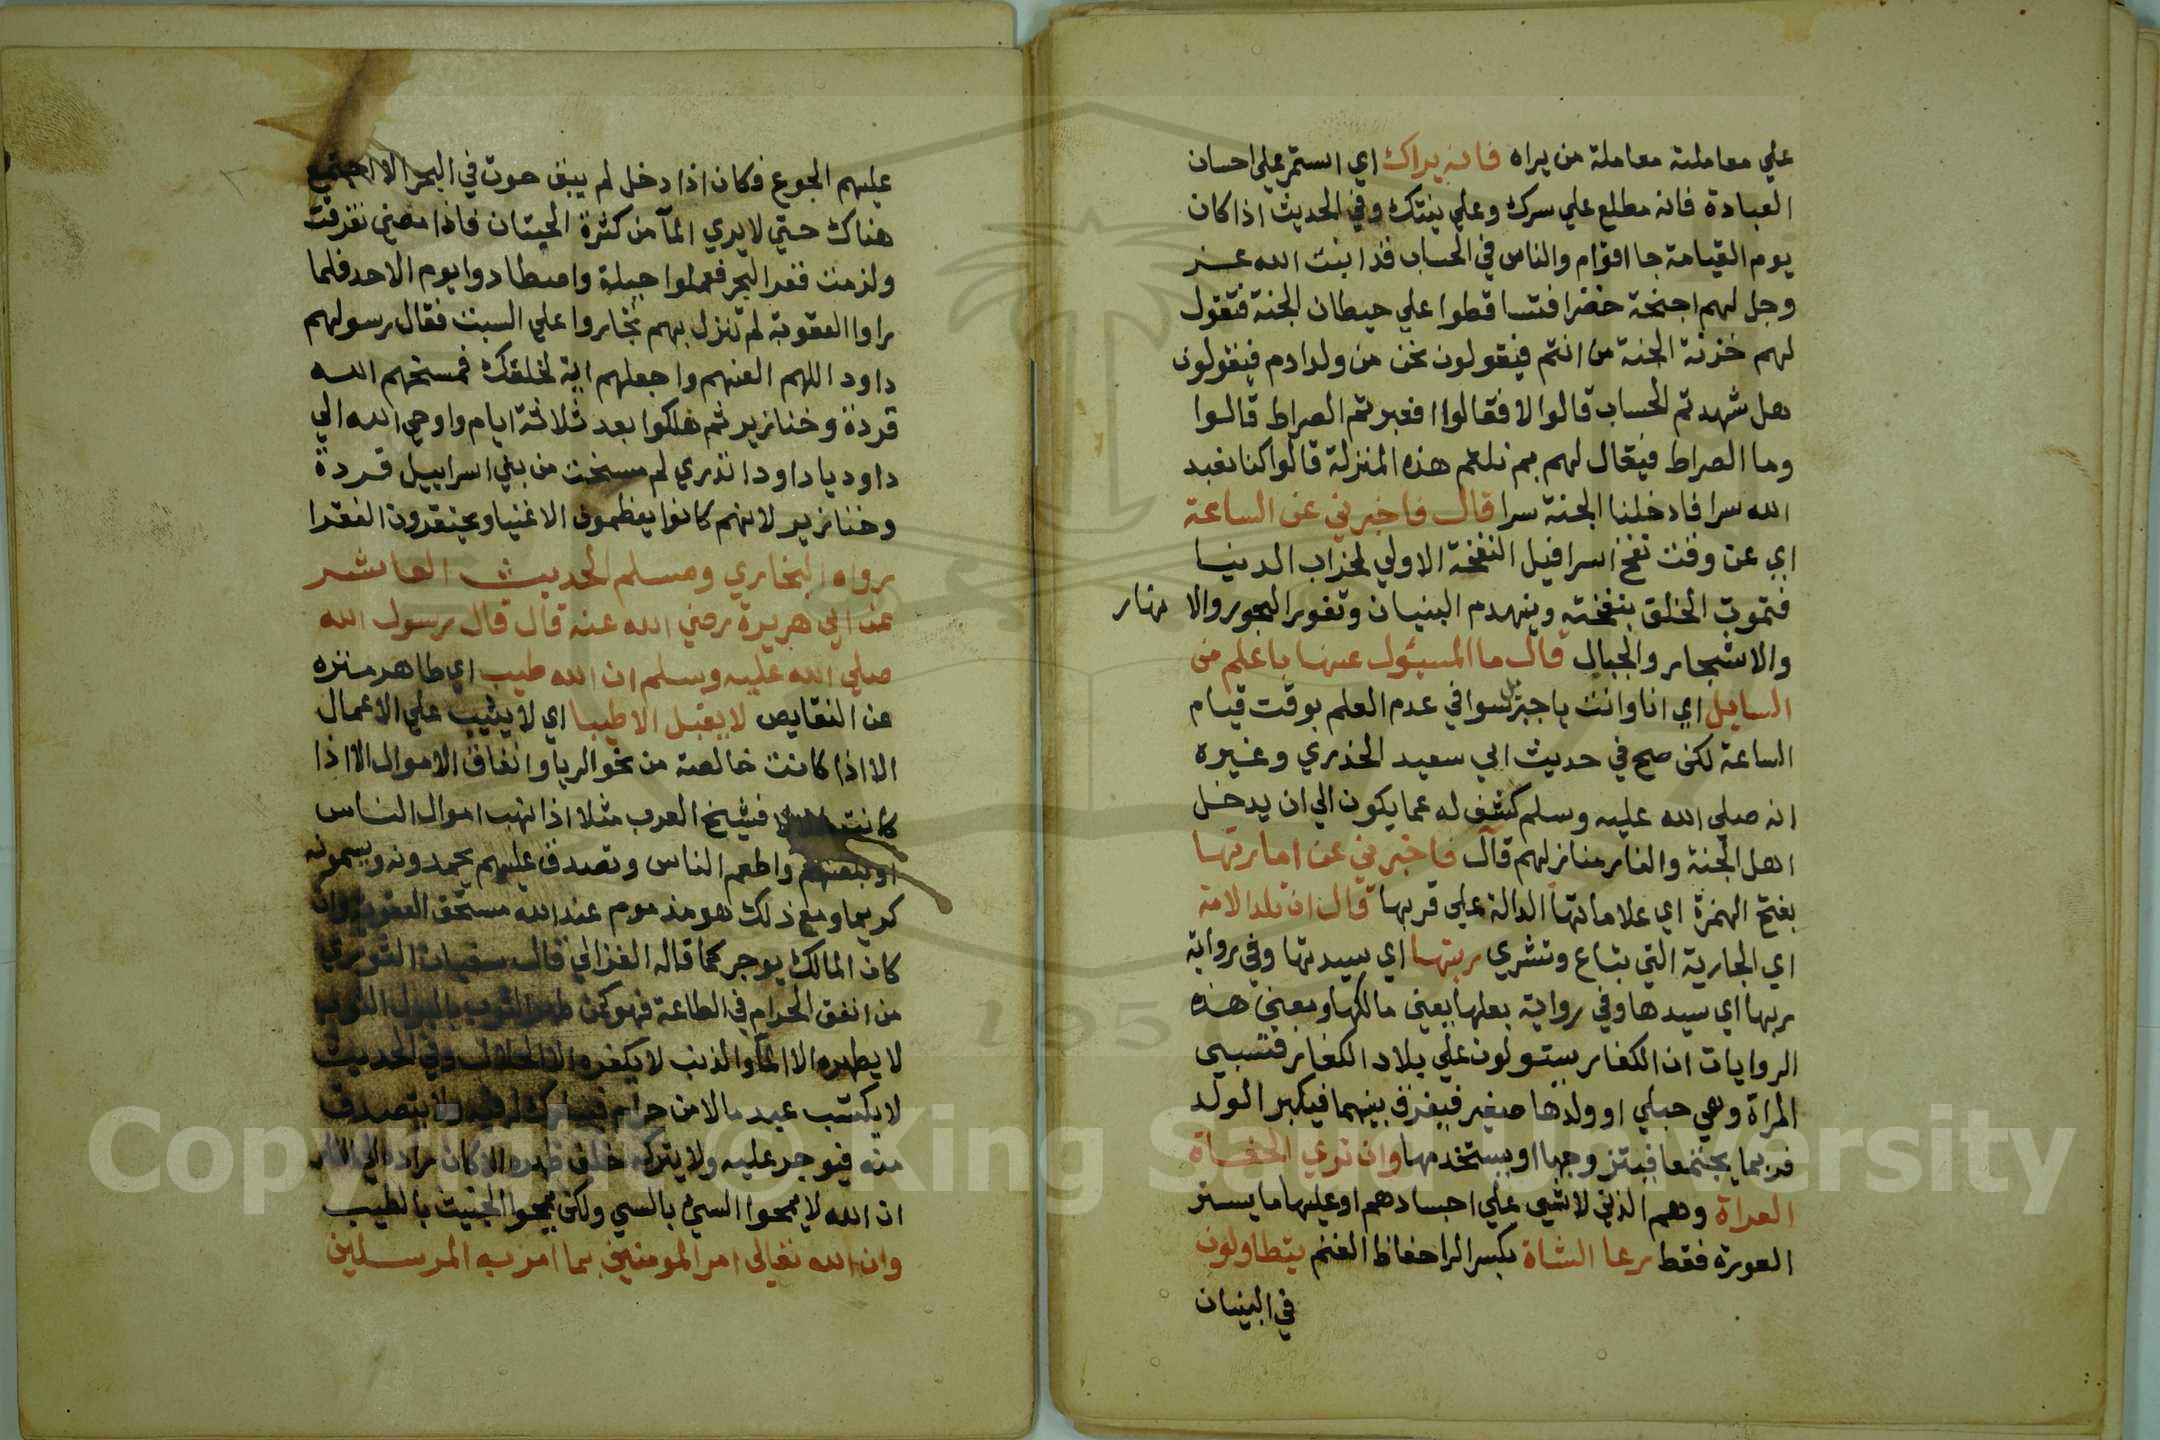 علي معاملته معاملة من يراه فانه يراك اي استمر علي احسان
العبادة فانه مطلع علي سرك وعلي نيتك وفي الحديث اذا كان
يوم القيامة جا اقوام والناس في الحساب قد انبت الله عز
وجل لهم اجنحة خضرا فتساقطوا علي حيطان الجنة فتقول
لهم خزنة الجنة من انتم فيقولون نحن من ولد ادم فيقولون
هل شهدتم الحساب قالوا لا فقالوا افعبرتم الصراط قالوا
وما الصراط فيقال لهم بم نلتم هذه المنزلة قالوا كنا نعبد
الله سرا فادخلنا الجنة سرا قال فاخبرني عن الساعة
اي عن وقت نفخ اسرافيل النفخة الاولي لخراب الدنيا
فتموت الخلق بنفخته وينهدم البنيان وتغور البحور والا نهار
والاشجار والجبال قال ما المسئول عنها باعلم من
السايل اي انا وانت يا جبريل سوا في عدم العلم بوقت قيام
الساعة لكن صح في حديث ابي سعيد الخدري وغيره
انه صلي الله عليه وسلم كشف له عما يكون الي ان يدخل
اهل الجنة والنار منازلهم قال فاخبرني عن امارتها
بفتح الهمزة اي علاماتها الدالة علي قربها قال ان تلد الامة
اي الجارية التي تباع وتشري ربتها اي سيدتها وفي رواية
ربها اي سيدها وفي رواية بعلها يعني مالكها ومعني هذه
الروايات ان الكفار يستولون علي بلاد الكفار فتسبي
المراة وهي حبلي او ولدها صغير فيفرق بينهما فيكبر الولد
فربما يجتمعا فيتزوجها او يستخدمها وان تري الحفاة
العراة وهم الذين لا شي علي اجسادهم او عليها ما يستر
العورة فقط رعا الشاة بكسر الرا حفاظ الغنم يتطاولون
في البنيان
عليهم الجوع فكان اذا دخل لم يبق حوت في البحر الا اجتمع
هناك حتي لا يري الما من كثرة الحيتان فاذا مضي تفرقت
ولزمت قعر البحر فعملوا حيلة واصطادوا يوم الاحد فلما
راوا العقوبة لم تنزل بهم تجاروا علي السبت فقال رسولهم
داود اللهم العنهم واجعلهم اية لخلقك فمسخهم الله
قردة وخنازير ثم هلكوا بعد ثلاثة ايام واوحي الله الي
داود يا داود اتدري لم مسخت من بني اسراييل قردة
وخنازير لانهم كانوا يعظمون الاغنيا ويحتقرون الفقرا
رواه البخاري ومسلم الحديث العاشر
عن ابي هريرة رضي الله عنه قال قال رسول الله
صلي الله عليه وسلم ان الله طيب اي طاهر منزه
عن النقايص لا يقبل الا طيبا اي لا يثيب علي الاعمال
الا اذا كانت خالصة من نحو الريا وانفاق الاموال الا اذا
كانت فشيخ العرب مثلا اذا نهب اموال الناس
او واطعم الناس وتصدق عليهم يحمدونه ويسمونه
كريما ومع ذلك هو مذموم عند الله مستحق العقوبة وان
كان المالك يوجر كما قاله الغزالي قال سفيان الثوري
من انفق الحرام في الطاعة فهو كمن طهر الثوب بالبول الثوب
لا يطهره الا الما والذنب لا يكفره الا الحلال وفي الحديث
لا يكتسب عبد مالا من حرام فيبارك له فيه ولا يتصدق
منه فيوجر عليه ولا يتركه خلف ظهره الا كان زاده الي النار
ان الله لا يمحوا السي بالسي ولكن يمحوا الخبيث بالطيب
وان الله تعالي امر المومنين بما امر به المرسلين
Copyright © King Saud University
1957